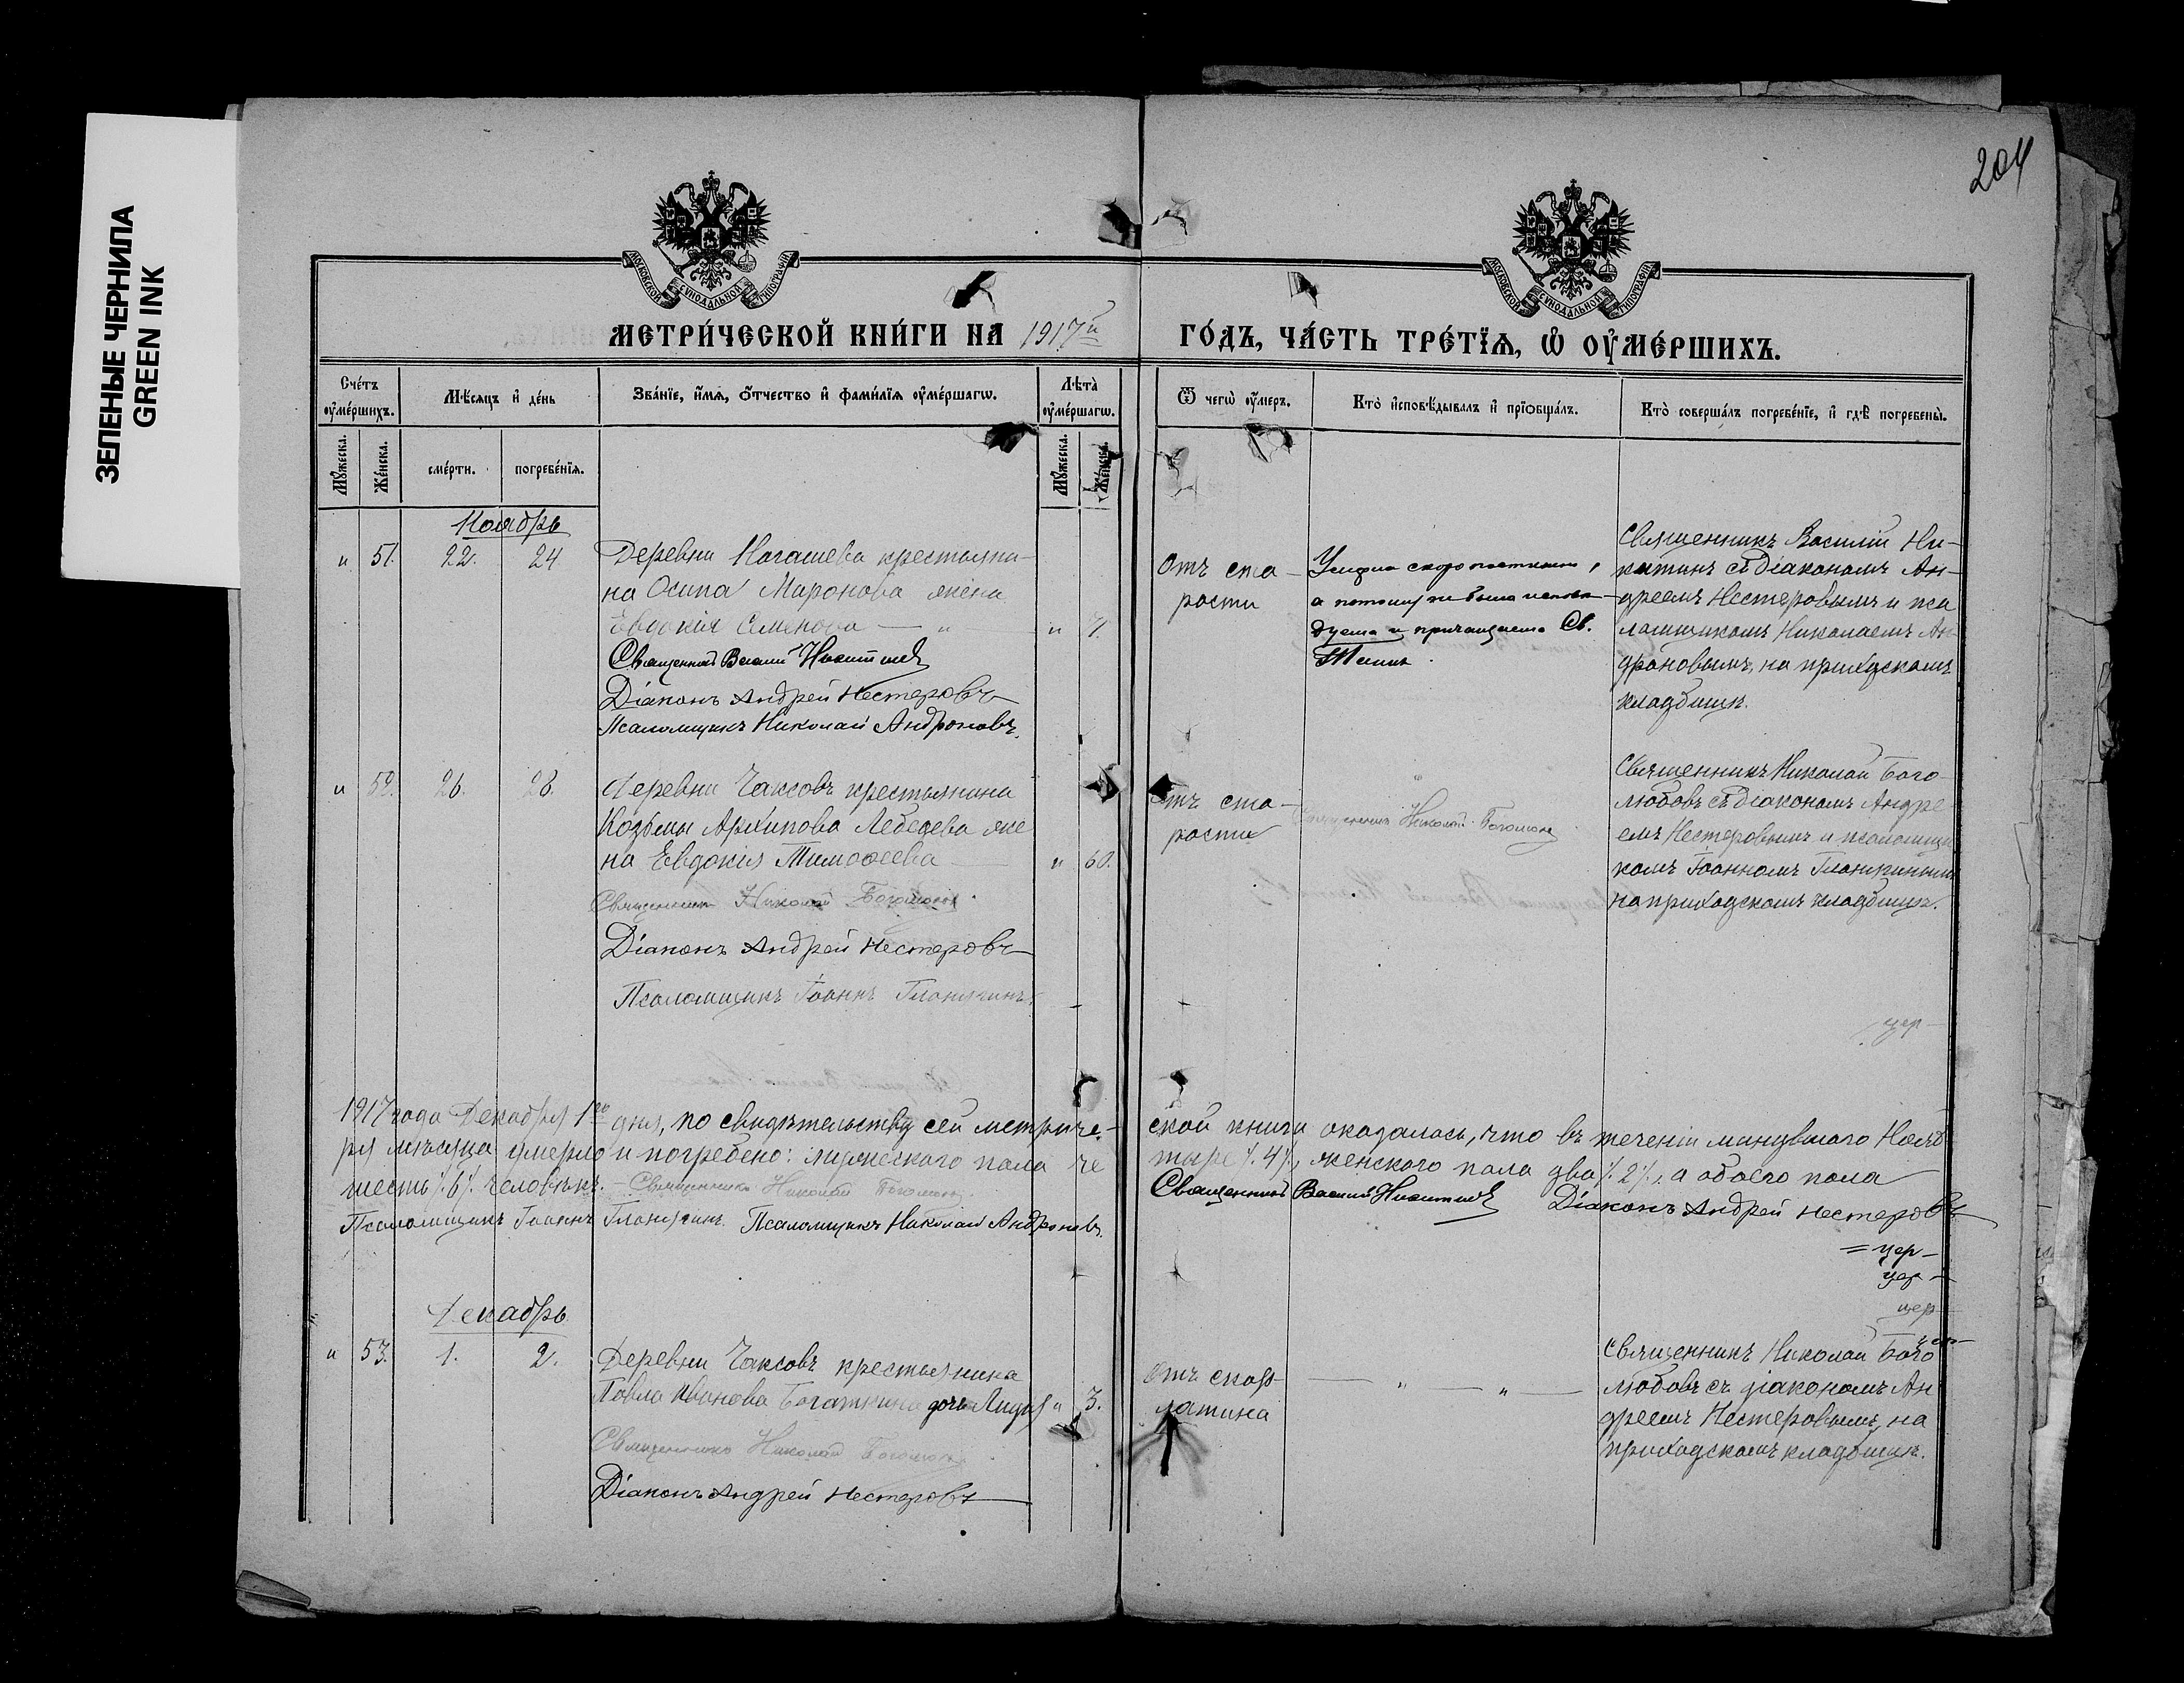 ЗЕЛЕНЫЕ ЧЕРНИЛА
GREEN INK
204
МОСКОВСКОЙ СУНОДАЛЬНОЙ ТИПОГРАФІИ
МОСКОВСКОЙ СУНОДАЛЬНОЙ ТИПОГРАФІИ
МЕТРИ́ЧЕСКОЙ КНИ́ГИ НА 1917й ГО́ДЪ, ЧА́СТЬ ТРЕ́ТЇѦ, Ѽ ОУ҆МЕ́РШИХЪ.
Сче́тъ оу҆ме́ршихъ.
Мѣсѧцъ и҆ де́нь
Зва́нїе, и҆́мѧ, ѻ҆́тчество и҆ фами́лїѧ оу҆ме́ршагѡ.
Лѣта̀ оу҆ме́ршагѡ.
Ѿ чегѡ̀ оу҆́меръ.
Кто̀ и҆сповѣ́дывалъ и҆ прїѡбща́лъ.
Кто̀ соверша́лъ погребе́нїе, и҆ гдѣ̀ погребены̀.
Мꙋ́жеска.
Же́нска.
сме́рти.
погребе́нїѧ.
Мꙋ́жеска.
Же́нска.
Ноябрь
" 51. 22. 24
Деревни крестьяни-
на Осипа Миронова жена
Евдокія Семенова — "
Священникъ Василій Никитинъ
Діаконъ Андрей Нестеровъ
Псаломщикъ Николай Андроновъ.
Отъ ста-
рости
Умерла скоропостижно,
а потому не была испове-
дуема и причащаема Св.
Таинъ.
Священникъ Василій Ни-
китинъ съ діакономъ Ан-
дреемъ Нестеровымъ и пса
ломщикомъ Николаемъ Ан
дроновымъ, на приходскомъ
кладбищѣ.
" 52. 26. 28.
Деревни Чаксовъ крестьянина
Козьмы Архипова Лебедева же
на Евдокія Тимоѳеева
" 60.
Священникъ Николай Боголюбовъ.
Діаконъ Андрей Нестеровъ
Псаломщикъ Іоаннъ
Отъ ста-
рости
Священникъ Николай Боголюбовъ
Священникъ Николай Бого-
любовъ съ діакономъ Андре
емъ Нестеровымъ и псаломщи
комъ Іоанномъ
на приходскомъ кладбищѣ.
цер-
1917 года Декабря 1го дня, по свидѣтельству сей метриче- ской книги оказалось, что въ теченіи минувшаго Нояб
ря мѣсяца умерло и погребено: мужескаго пола че тыре /.4/., женскаго пола два /.2/., а обоего пола
шесть /.6/. человѣкъ. – Священникъ Николай Боголюбовъ. Священникъ Василій Никитинъ Діаконъ Андрей Нестеровъ
Псаломщикъ Іоаннъ Псаломщикъ Николай Андроновъ.
= цер-
цер-
цер-
цер-
Декабрь
" 53. 1. 2.
Деревни Чаксовъ крестьянина
Павла Иванова дочь Лидія " 3.
Священникъ Николай Боголюбовъ
Діаконъ Андрей Нестеровъ
Отъ скар-
латина
— " — " —
Священникъ Николай Бого
любовъ съ діакономъ Ан
дреемъ Нестеровымъ, на
приходскомъ кладбищѣ.